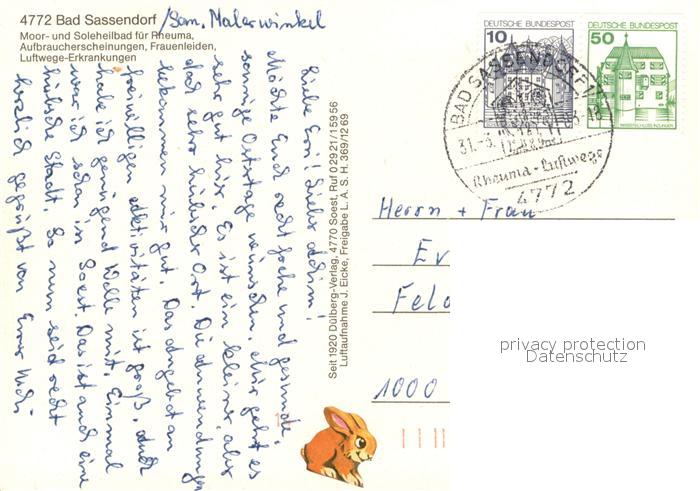 4772 Bad Sassendorf / San. Malerwinkel
Moor- und Soleheilbad für Rheuma,
Aufbraucherscheinungen, Frauenleiden,
Luftwege-Erkrankungen
Liebe Evi! Lieber Achim!
Möchte Euch recht frohe und gesunde,
sonnige Ostertage wünschen. Mir geht es
sehr gut hier. Es ist ein kleiner, aber
das sehr hübscher Ort. Die Anwendungen
bekommen mir gut. Das Angebot an
freiwilligen Aktivitäten ist groß. Auch
habe ich genügend Wolle mit. Einmal
war ich schon in Soest. Das ist auch eine
hübsche Stadt. So nun seid recht
herzlich gegrüßt von Eurer
Seit 1920 Dülberg-Verlag, 4770 Soest, Ruf 0 29 21 / 1 59 56
Luftaufnahme J. Eicke, Freigabe L. A. S. H. 369/12 69
DEUTSCHE BUNDESPOST
10
DEUTSCHE BUNDESPOST
50
WASSERSCHLOSS INZLINGEN
BAD SASSENDORF
31.-3.
-18
Rheuma-Luftwege
4772
Herrn + Frau
Ev
Feld
1000
privacy protection
Datenschutz